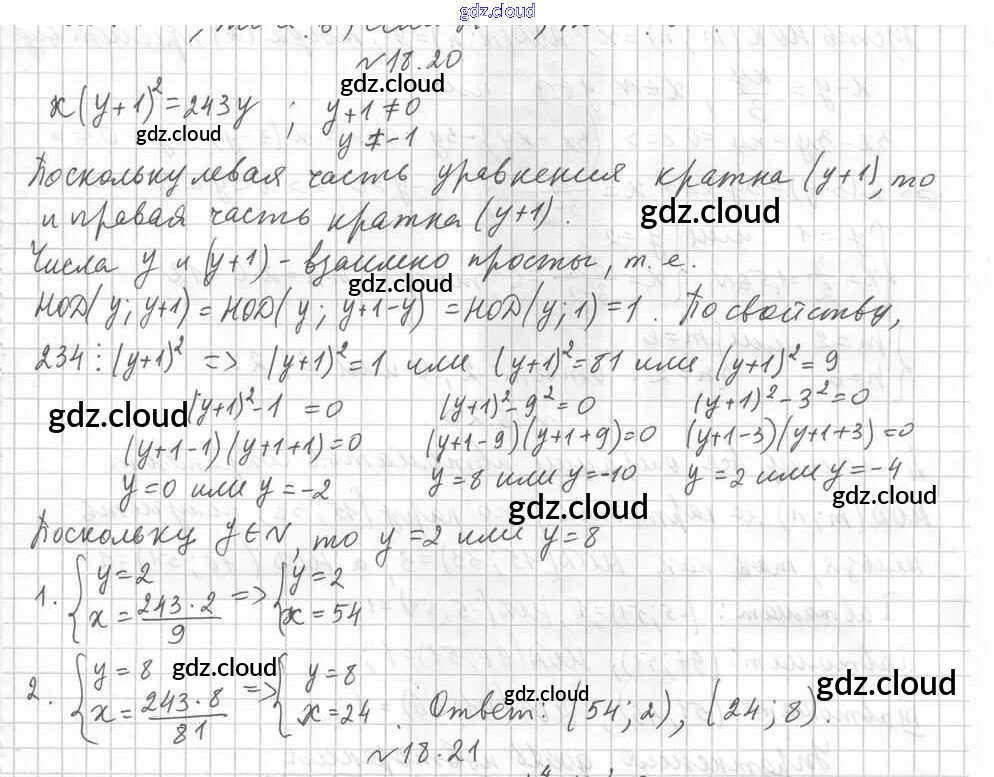 gdz.cloud
№18.20
gdz.cloud
x(y+1)²=243y ; y+1≠0
gdz.cloud
y≠-1
Поскольку левая часть уравнения кратна (y+1), то
и правая часть кратна (y+1).
gdz.cloud
Числа y и (y+1) - взаимно просты, т.е.
gdz.cloud
НОД(y; y+1) = НОД(y; y+1-y) = НОД(y; 1) = 1. По свойству,
234⋮(y+1)² => (y+1)²=1 или (y+1)²=81 или (y+1)²=9
gdz.cloud (y+1)²-1 =0 (y+1)²-9²=0 (y+1)²-3²=0
(y+1-1)(y+1+1)=0 (y+1-9)(y+1+9)=0 (y+1-3)(y+1+3)=0
y=0 или y=-2 y=8 или y=-10 y=2 или y=-4
gdz.cloud gdz.cloud
Поскольку y∈N, то y=2 или y=8
1. {y=2 {y=2
x=243·2/9 => x=54
2. {y=8 gdz.cloud {y=8
x=243·8/81 => x=24. Ответ: (54;2), (24;8).
gdz.cloud gdz.cloud
№18.21